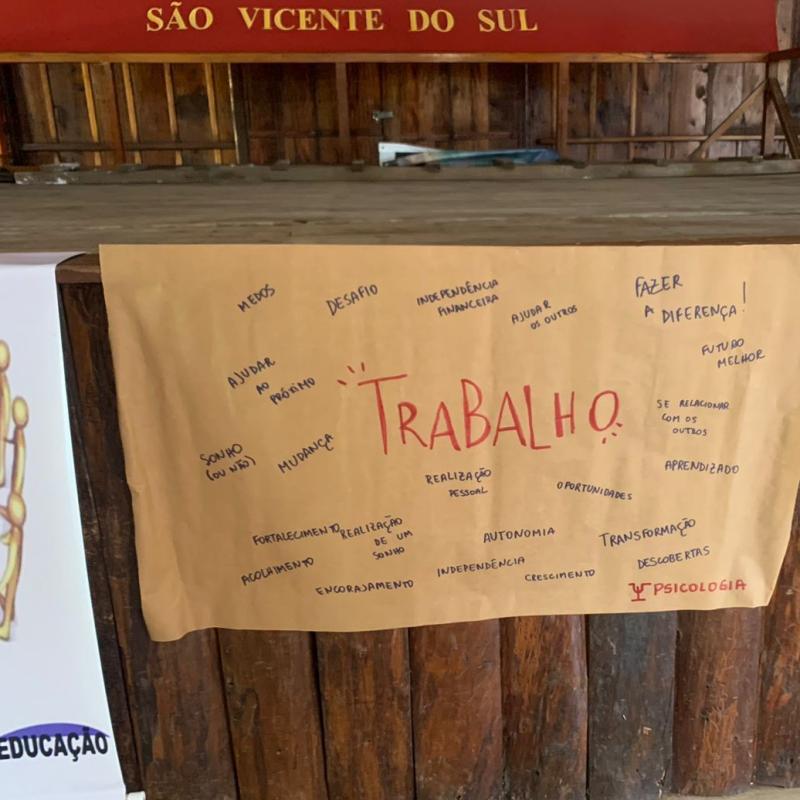 SÃO VICENTE DO SUL
MEDOS
DESAFIO
INDEPENDÊNCIA
FINANCEIRA
AJUDAR
OS OUTROS
FAZER
A DIFERENÇA!
FUTURO
MELHOR
AJUDAR
AO
PRÓXIMO
TRABALHO
SE RELACIONAR
COM OS
OUTROS
SONHO
(OU NÃO)
MUDANÇA
REALIZAÇÃO
PESSOAL
OPORTUNIDADES
APRENDIZADO
FORTALECIMENTO
REALIZAÇÃO
DE UM
SONHO
AUTONOMIA
TRANSFORMAÇÃO
ACOLHIMENTO
ENCORAJAMENTO
INDEPENDÊNCIA
CRESCIMENTO
DESCOBERTAS
Ψ PSICOLOGIA
EDUCAÇÃO